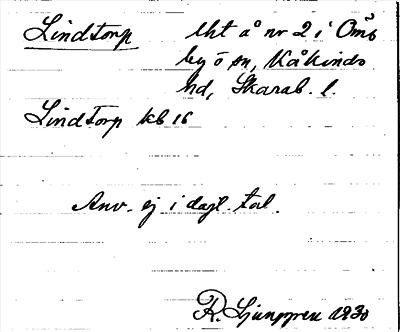 Lindtorp lht å nr 2 i Omb
by ö sn, Kåkinds
hd, Skarab. l.
Lindtorp kb 16
Anv. ej i dagl. tal.
R. Ljunggren 1930